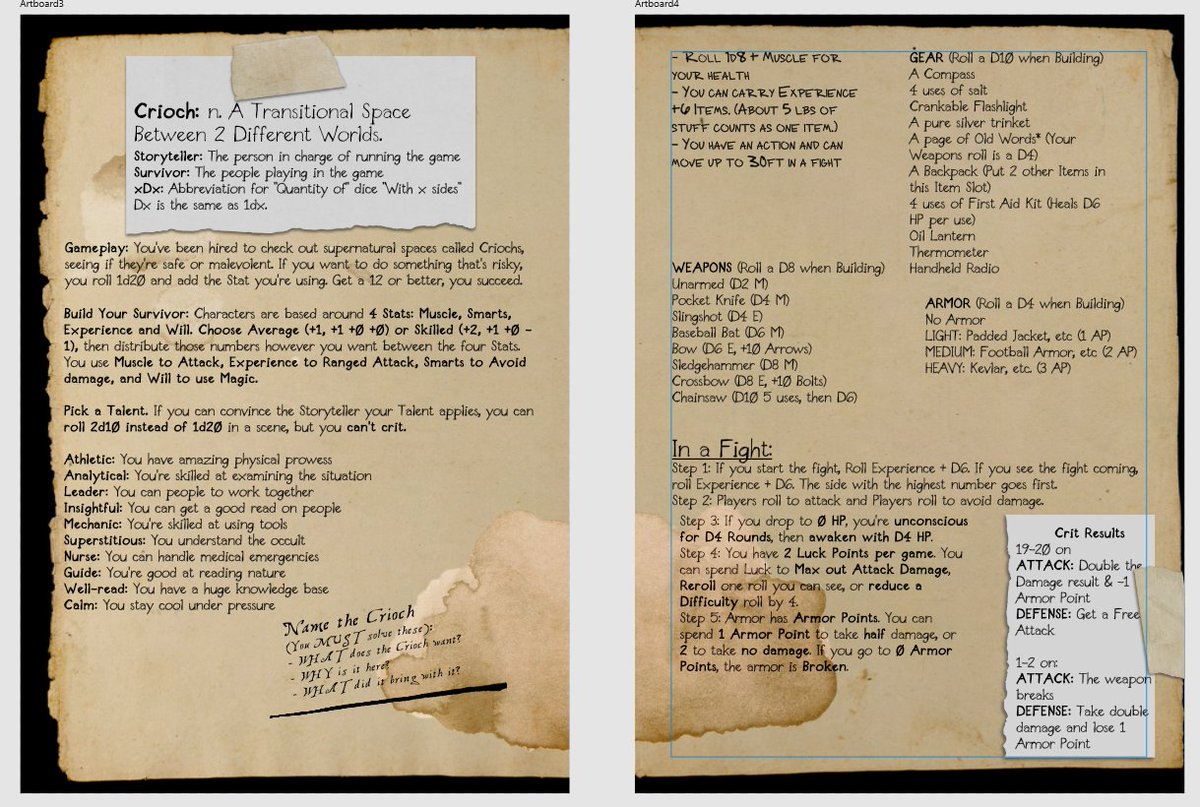 Artboard3
Crioch: n. A Transitional Space
Between 2 Different Worlds.
Storyteller: The person in charge of running the game
Survivor: The people playing in the game
xDx: Abbreviation for "Quantity of" dice "With x sides"
Dx is the same as 1dx.
Gameplay: You've been hired to check out supernatural spaces called Criochs,
seeing if they're safe or malevolent. If you want to do something that's risky,
you roll 1d20 and add the Stat you're using. Get a 12 or better, you succeed.
Build Your Survivor: Characters are based around 4 Stats: Muscle, Smarts,
Experience and Will. Choose Average (+1, +1 +0 +0) or Skilled (+2, +1 +0 -
1), then distribute those numbers however you want between the four Stats.
You use Muscle to Attack, Experience to Ranged Attack, Smarts to Avoid
damage, and Will to use Magic.
Pick a Talent. If you can convince the Storyteller your Talent applies, you can
roll 2d10 instead of 1d20 in a scene, but you can't crit.
Athletic: You have amazing physical prowess
Analytical: You're skilled at examining the situation
Leader: You can people to work together
Insightful: You can get a good read on people
Mechanic: You're skilled at using tools
Superstitious: You understand the occult
Nurse: You can handle medical emergencies
Guide: You're good at reading nature
Well-read: You have a huge knowledge base
Calm: You stay cool under pressure
Name the Crioch
(You MUST solve these):
- WHAT does the Crioch want?
- WHY is it here?
- WHAT did it bring with it?
Artboard4
- Roll 1D8 + Muscle for
your health
- You can carry Experience
+6 Items. (About 5 lbs of
stuff counts as one item.)
- You have an action and can
move up to 30ft in a fight
GEAR (Roll a D10 when Building)
A Compass
4 uses of salt
Crankable Flashlight
A pure silver trinket
A page of Old Words* (Your
Weapons roll is a D4)
A Backpack (Put 2 other Items in
this Item Slot)
4 uses of First Aid Kit (Heals D6
HP per use)
Oil Lantern
Thermometer
Handheld Radio
WEAPONS (Roll a D8 when Building)
Unarmed (D2 M)
Pocket Knife (D4 M)
Slingshot (D4 E)
Baseball Bat (D6 M)
Bow (D6 E, +10 Arrows)
Sledgehammer (D8 M)
Crossbow (D8 E, +10 Bolts)
Chainsaw (D10 5 uses, then D6)
ARMOR (Roll a D4 when Building)
No Armor
LIGHT: Padded Jacket, etc (1 AP)
MEDIUM: Football Armor, etc (2 AP)
HEAVY: Kevlar, etc. (3 AP)
In a Fight:
Step 1: If you start the fight, Roll Experience + D6. If you see the fight coming,
roll Experience + D6. The side with the highest number goes first.
Step 2: Players roll to attack and Players roll to avoid damage.
Step 3: If you drop to 0 HP, you're unconscious
for D4 Rounds, then awaken with D4 HP.
Step 4: You have 2 Luck Points per game. You
can spend Luck to Max out Attack Damage,
Reroll one roll you can see, or reduce a
Difficulty roll by 4.
Step 5: Armor has Armor Points. You can
spend 1 Armor Point to take half damage, or
2 to take no damage. If you go to 0 Armor
Points, the armor is Broken.
Crit Results
19-20 on
ATTACK: Double the
Damage result & -1
Armor Point
DEFENSE: Get a Free
Attack
1-2 on:
ATTACK: The weapon
breaks
DEFENSE: Take double
damage and lose 1
Armor Point